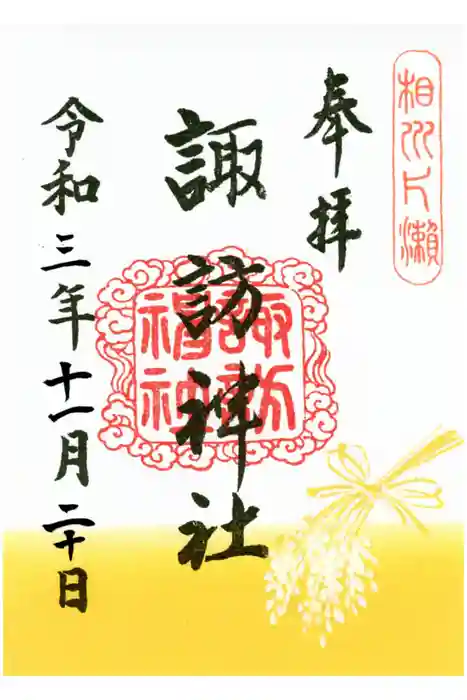 相州片瀬
奉拝
諏訪神社
諏訪
福神
令和三年十一月二十日